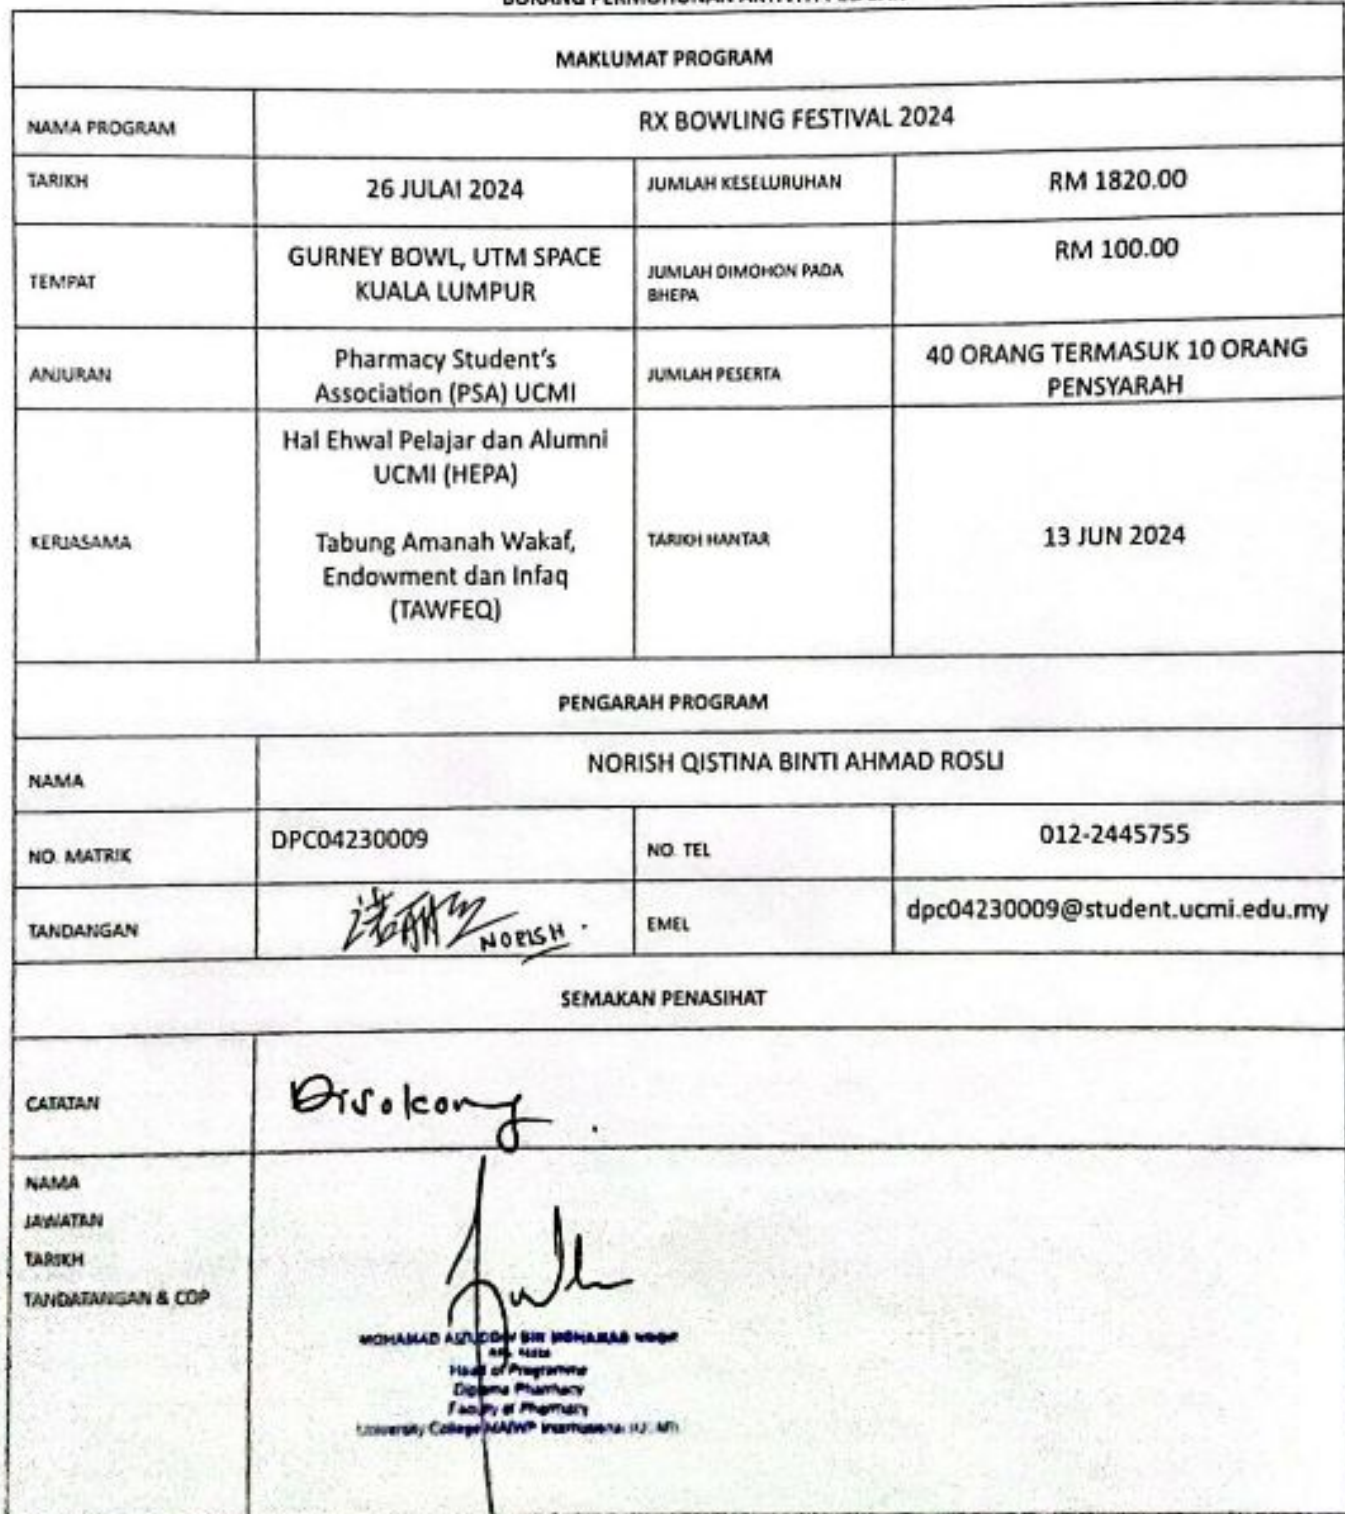 MAKLUMAT PROGRAM
NAMA PROGRAM
RX BOWLING FESTIVAL 2024
TARIKH
26 JULAI 2024
JUMLAH KESELURUHAN
RM 1820.00
TEMPAT
GURNEY BOWL, UTM SPACE
KUALA LUMPUR
JUMLAH DIMOHON PADA
BHEPA
RM 100.00
ANJURAN
Pharmacy Student's
Association (PSA) UCMI
JUMLAH PESERTA
40 ORANG TERMASUK 10 ORANG
PENSYARAH
KERJASAMA
Hal Ehwal Pelajar dan Alumni
UCMI (HEPA)
Tabung Amanah Wakaf,
Endowment dan Infaq
(TAWFEQ)
TARIKH HANTAR
13 JUN 2024
PENGARAH PROGRAM
NAMA
NORISH QISTINA BINTI AHMAD ROSLI
NO. MATRIK
DPC04230009
NO. TEL
012-2445755
TANDANGAN
NORISH.
EMEL
dpc04230009@student.ucmi.edu.my
SEMAKAN PENASIHAT
CATATAN
Disokong.
NAMA
JAWATAN
TARIKH
TANDATANGAN & COP
MOHAMAD BIN MOHAMAD
Head of Programme
Diploma Pharmacy
Faculty of Pharmacy
University College MAIWP International (UCMI)